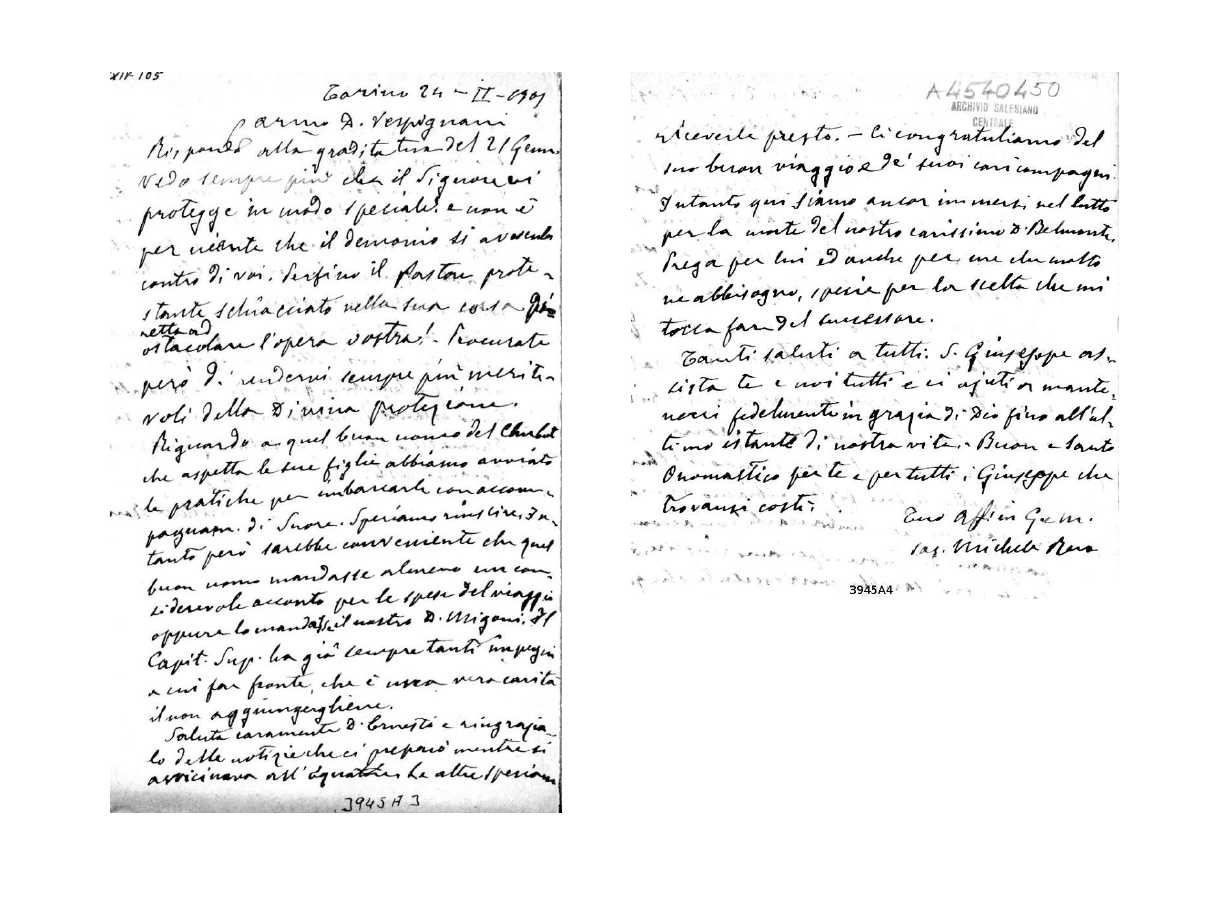 XIV-105
Torino 24 - II - 1901
Carmo D. Vespignani
Rispondo alla gradita tua del 21 Genn.
Vedo sempre più che il Signore vi
protegge in modo speciale. e non è
per niente che il demonio si avventa
contro di voi. Perfino il Pastore prote-
stante schiacciato nella sua corsa
retta ad
ostacolare l'opera vostra! - Procurate
però di rendervi sempre più merite-
voli della Divina protezione.
Riguardo a quel buon uomo del Chubut
che aspetta le sue figlie abbiamo avviato
le pratiche per imbarcarle con accom-
pagnam. di Suore. Speriamo riuscire. In-
tanto però sarebbe conveniente che quel
buon uomo mandasse almeno un con-
siderevole acconto per le spese del viaggio
oppure lo mandasse il nostro D. Migoni. Il
Capit. Sup. ha già sempre tanti impegni
a cui far fronte, che è una vera carità
il non aggiungergliene.
Saluta caramente D. Ernesto e ringrazia-
lo delle notizie che ci preparò mentre si
avvicinava all'Equatore. Le altre speriamo
3945A3
A4540450
ARCHIVIO SALESIANO
CENTRALE
riceverle presto. - Ci congratuliamo del
suo buon viaggio e de' suoi cari compagni.
Intanto qui siamo ancor immersi nel lutto
per la morte del nostro carissimo D. Belmonte.
Prega per lui ed anche per me che molto
ne abbisogno, specie per la scelta che mi
tocca fare del successore.
Tanti saluti a tutti. S. Giuseppe as-
sista te e noi tutti e ci ajuti a mante-
nerci fedelmente in grazia di Dio fino all'ul-
timo istante di nostra vita. - Buon e Santo
Onomastico per te e per tutti i Giuseppe che
trovansi costì.
Tuo Aff. in G. e M.
Sac. Michele Rua
3945A4